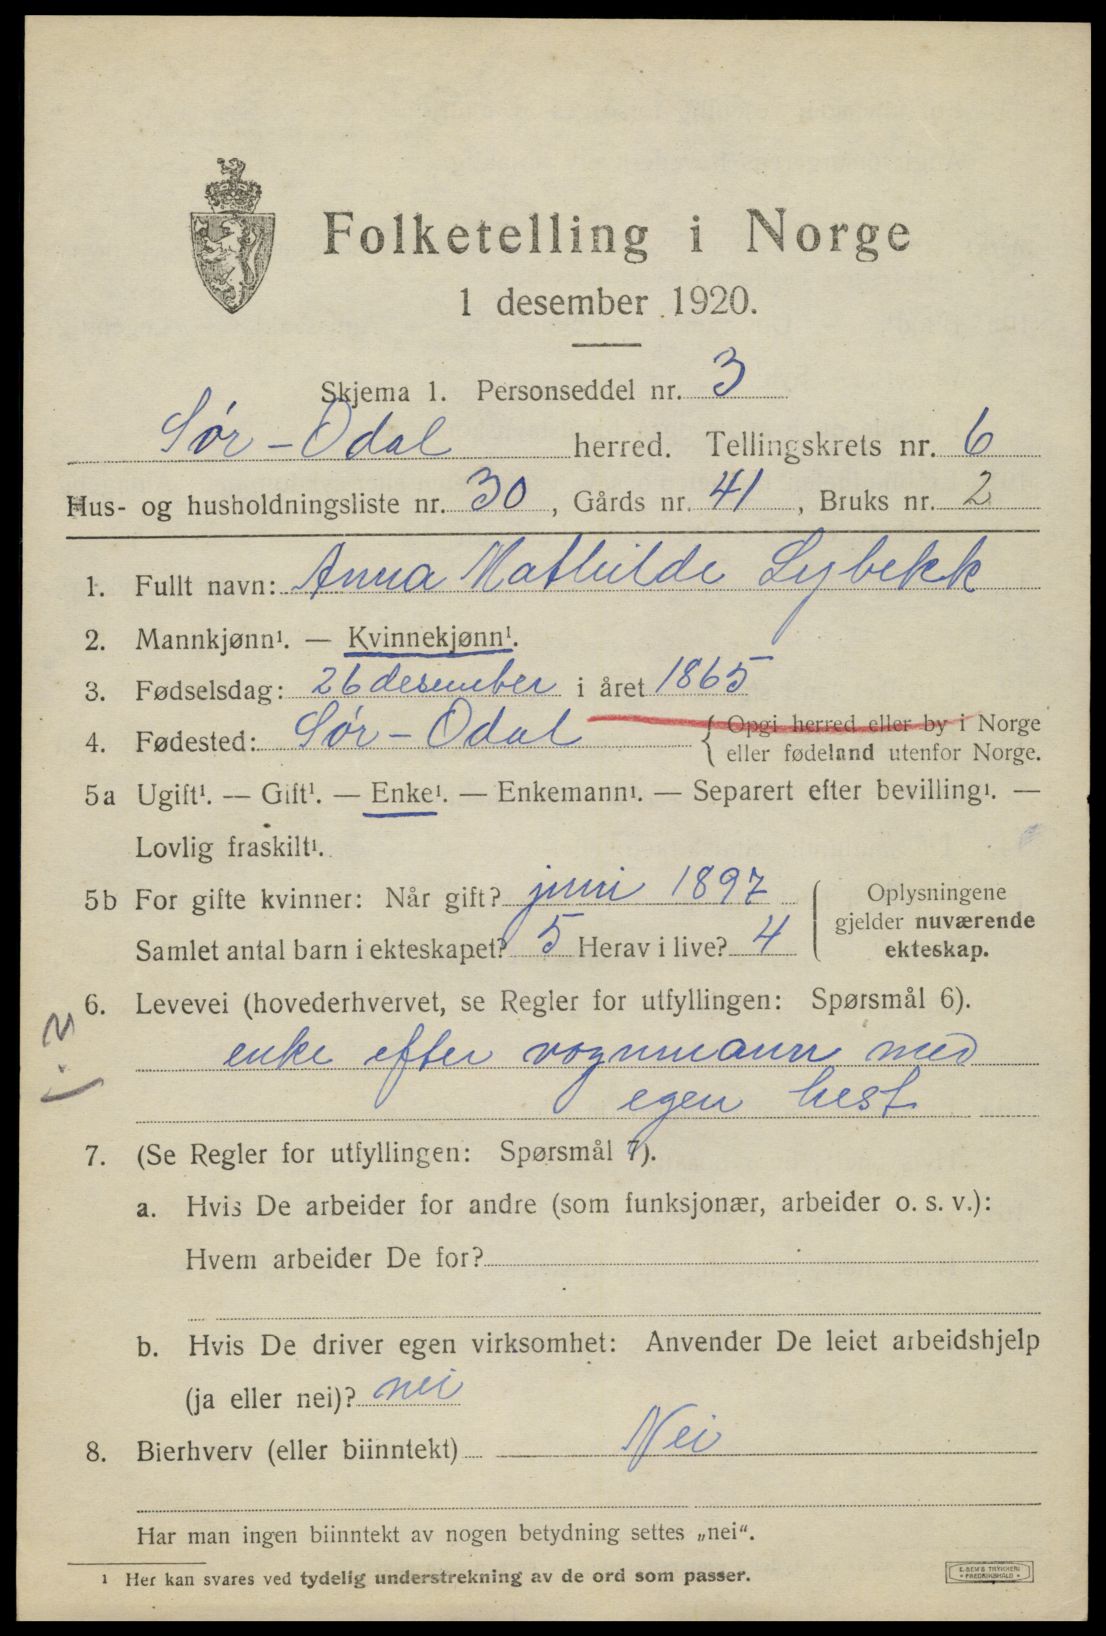 Folketelling i Norge
1 desember 1920.
Skjema 1. Personseddel nr. 3
Sør-Odal herred. Tellingskrets nr. 6
Hus- og husholdningsliste nr. 30, Gårds nr. 41, Bruks nr. 2
1. Fullt navn: Anna Mathilde Lybekk
2. Mannkjønn¹. — Kvinnekjønn¹.
3. Fødselsdag: 26 desember i året 1865
4. Fødested: Sør-Odal { Opgi herred eller by i Norge
eller fødeland utenfor Norge.
5a Ugift¹. — Gift¹. — Enke¹. — Enkemann¹. — Separert efter bevilling¹. —
Lovlig fraskilt¹.
5b For gifte kvinner: Når gift? juni 1897
Samlet antal barn i ekteskapet? 5 Herav i live? 4
{ Oplysningene
gjelder nuværende
ekteskap.
6. Levevei (hovederhvervet, se Regler for utfyllingen: Spørsmål 6).
enke efter vognmann med
egen hest
7. (Se Regler for utfyllingen: Spørsmål 7).
a. Hvis De arbeider for andre (som funksjonær, arbeider o. s. v.):
Hvem arbeider De for?
b. Hvis De driver egen virksomhet: Anvender De leiet arbeidshjelp
(ja eller nei)? nei
8. Bierhverv (eller biinntekt) Nei
Har man ingen biinntekt av nogen betydning settes „nei“.
¹ Her kan svares ved tydelig understrekning av de ord som passer.
E. SEM'S TRYKKERI
FREDRIKSHALD